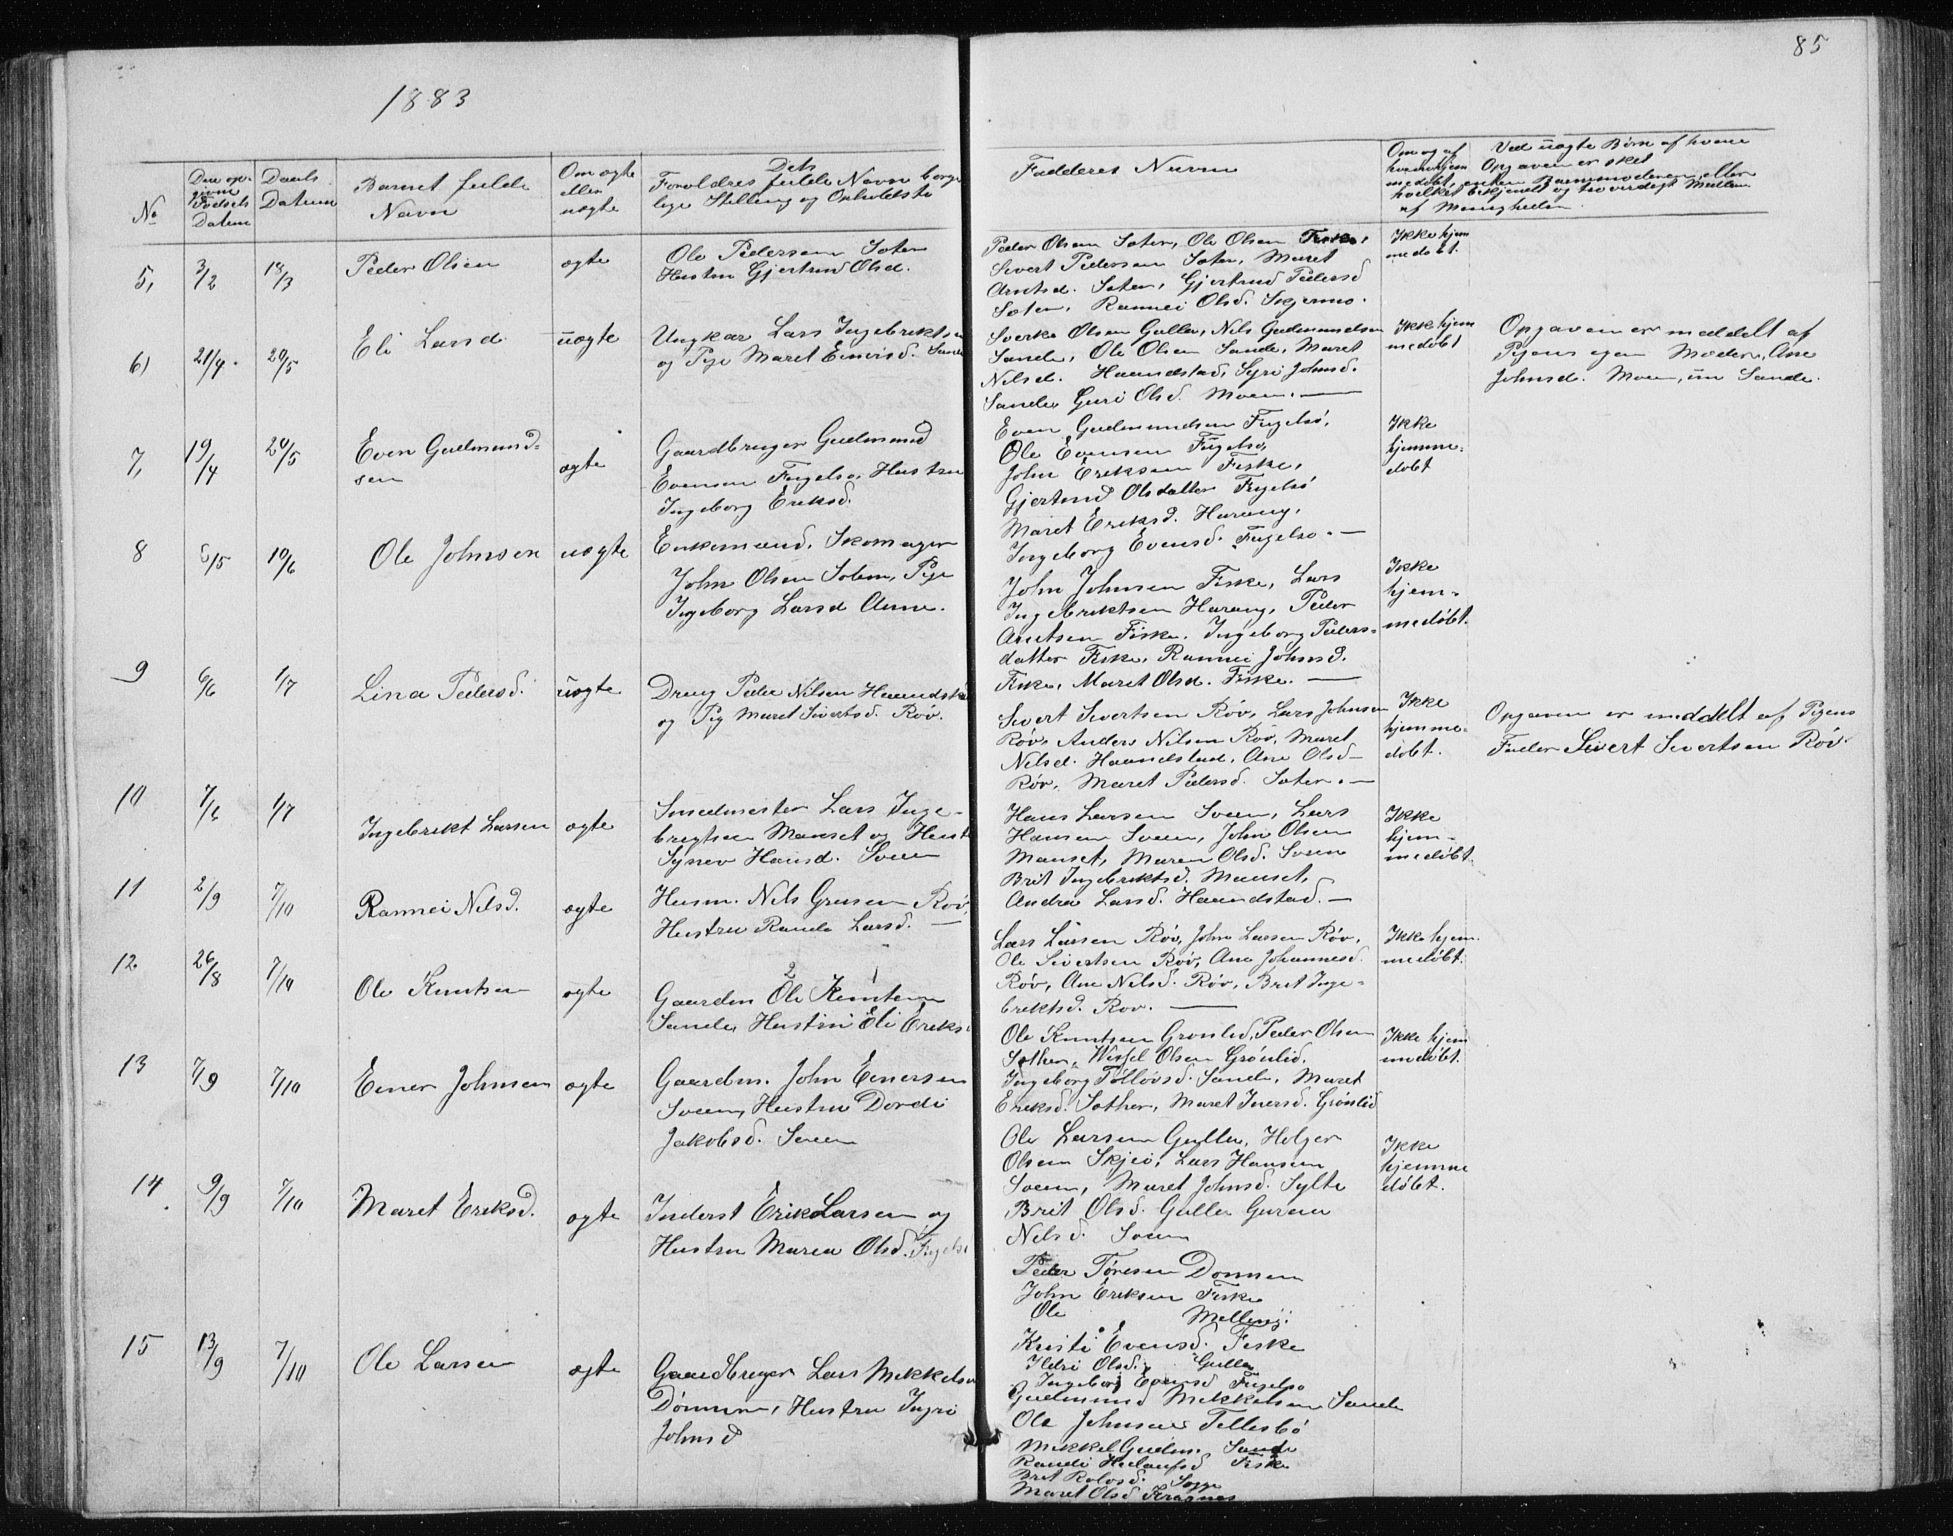 1883
85
No
Den op-
givne
Fødsels
Datum
Daabs
Datum
Barnet fulde
Navn
Om ægte
eller
uægte
Dets
Foreldres fulde Navn borger
lige Stilling og Opholdste
Fadderes Navn
Om og af
hvem hjem
medøbt,
Ved uægte Børn af hvem
Opgaven er sket
enten Barnmoderen eller
og troverdigt Medlem
af Menigheden.
5,
3/2
18/3
Peder Olsen
ægte
Ole Pedersen Sæter
Hustru Gjertrud Olsd.
Peder Olsen Sæter, Ole Olsen Fiske,
Sivert Pedersen Sæter, Maret
Arntsd. Sæter, Gjertrud Pedersd
Sæter, Rannei Olsd. Skjermo.
Ikke hjem
medøbt.
6)
21/4.
20/5
Eli Larsd.
uægte
Ungkar Lars Ingebriktsen
og Pige Maret Einersd. Sande
Sverke Olsen Gulla, Nils Gudmundsen
Sande, Ole Olsen Sande, Maret
Nilsd. Haandstad, Syri Johnsd.
Sande Guri Olsd. Moen. —
Ikke hjem
medøbt
Opgaven er meddelt af
Pigens egen Moder, Ane
Johnsd. Moen, Sande.
7,
19/4
20/5
Even Gudmund-
sen
ægte
Gaardbruger Gudmund
Evensen Fugelsø, Hustru
Ingeborg Eriksd.
Even Gudmundsen Fugelsø,
Ole Evensen Fugelsø,
John Eriksen Fiske,
Gjertrud Olsdatter Fugelsø
Maret Eriksd. Harang,
Ingeborg Evensd. Fugelsø. —
Ikke
hjemme-
døbt
8
6/5
10/6
Ole Johnsen
uægte
Enkemand. Skomager
John Olsen Solem, Pige
Ingeborg Larsd Aune.
John Johnsen Fiske, Lars
Ingebriktsen Harang, Peder
Arntsen Fiske. Ingeborg Peders-
datter Fiske, Rannei Johnsd.
Fiske, Maret Olsd. Fiske. —
Ikke
hjem-
medøbt.
9
6/6
1/7
Lina Pedersd.
uægte
Dreng Peder Nilsen Haandsta
og Pig Maret Sivertsd. Røv.
Sivert Sivertsen Røv, Lars Johnsen
Røv, Anders Nilsen Røv, Maret
Nilsd. Haandstad, Ane Olsd—
Røv, Maret Pedersd. Sæter. —
Ikke
hjemme-
døbt.
Opgaven er meddelt af Pigens
Fader Sivert Sivertsen Røv.
10
7/6
1/7
Ingebrikt Larsen
ægte
Smedmester Lars Inge-
brigtsen Manset og Hust
Synnev Hansd. Svean
Hans Larsen Sveen, Lars
Hansen Sveen, John Olsen
Manset, Maren Olsd. Sveen
Brit Ingebriktsd. Manset,
Andrea Larsd. Haandstad. —
Ikke
hjem-
medøbt.
11
2/9
7/10
Rannei Nilsd.
ægte
Husm. Nils Gresen Røv,
Hustru Randi Larsd. —
Lars Larsen Røv, John Larsen Røv,
Ole Sivertsen Røv, Ane Johannesd.
Røv, Ane Nilsd. Røv, Brit Inge-
briktsd. Rov. —
Ikke hjem
medøbt.
12
26/8
7/10
Ole Knutsen
ægte
2 1
Gaardm Ole Knutsen
Sande, Hustru Eli Eriks
Ole Knutsen Grønlid, Peder Olsen
Sæther, Wessel Olsen Grønlid.
Ingeborg Tollovsd. Sande, Maret
Eriksd. Sæther, Maret Iversd. Grønlid
Ikke hjem
medøbt.
13
7/9
7/10
Einer Johnsen
ægte
Gaardm. John Einersen
Sveen, Hustru Dordi
Jakobsd. Sveen
Ole Larsen Gulla, Holger
Olsen Skjei, Lars Hansen
Sveen, Maret Johnsd. Sylte
Brit Olsd. Gulla Guren
Nilsd. Sveen
Ikke
hjemme
døbt.
14
9/9
7/10
Maret Eriksd.
ægte
Inderst Erik Larsen og
Hustru Maren Olsd. Fugels
Peder Toresen Donnem
John Eriksen Fiske
Ole Melhøi
Kristi Evensd. Fiske
Ildri Olsd. Gulla
Ingeborg Evensd Fugelsø
15
13/9
7/10
Ole Larsen
ægte
Gaardbruger Lars Mikkelsen
Dønnem, Hustru Ingri
Johnsd
Gudmund Mikkelsen Sande
Ole Johnsen Tellesbø
Mikkel Gudm. Sande
Randi Fiske
Brit Rolvsd. Sogge
Maret Olsd Kragnes